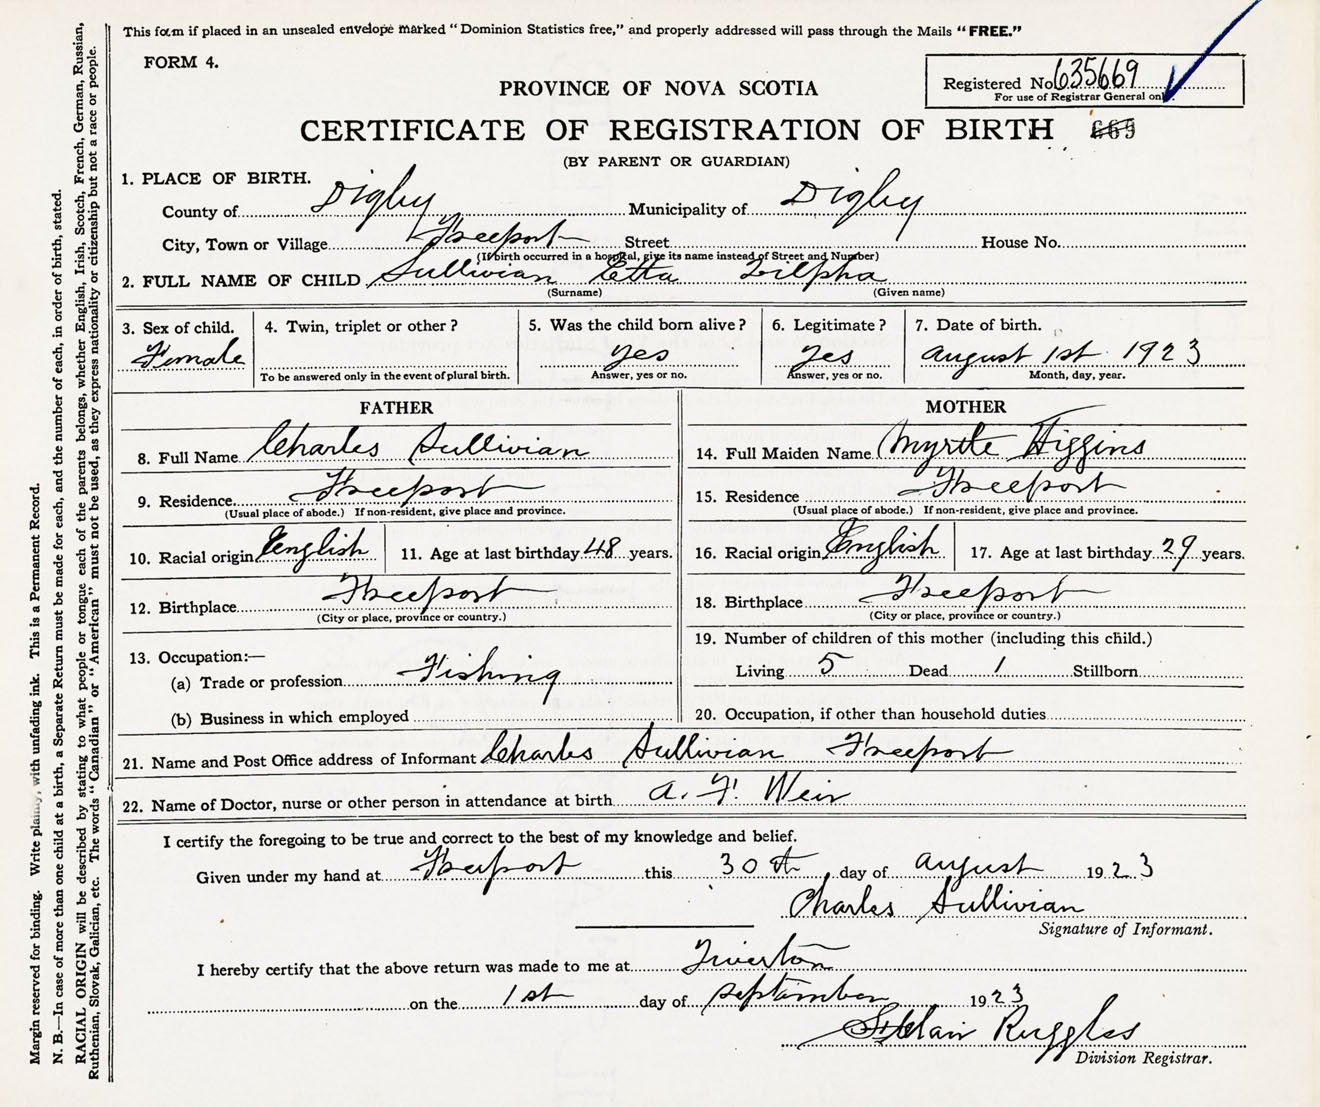 This form if placed in an unsealed envelope marked “Dominion Statistics free,” and properly addressed will pass through the Mails “FREE.”
FORM 4.
Registered No 635669
For use of Registrar General only.
PROVINCE OF NOVA SCOTIA
CERTIFICATE OF REGISTRATION OF BIRTH 669
(BY PARENT OR GUARDIAN)
1. PLACE OF BIRTH.
County of Digby Municipality of Digby
City, Town or Village Freeport Street House No.
(If birth occurred in a hospital, give its name instead of Street and Number)
2. FULL NAME OF CHILD Sullivian Etta Zilpha
(Surname) (Given name)
3. Sex of child. 4. Twin, triplet or other? 5. Was the child born alive? 6. Legitimate? 7. Date of birth.
Female yes yes august 1st 1923
To be answered only in the event of plural birth. Answer, yes or no. Answer, yes or no. Month, day, year.
FATHER
8. Full Name Charles Sullivian
9. Residence Freeport
(Usual place of abode.) If non-resident, give place and province.
10. Racial origin English 11. Age at last birthday 48 years.
12. Birthplace Freeport
(City or place, province or country.)
13. Occupation:—
(a) Trade or profession Fishing
(b) Business in which employed
MOTHER
14. Full Maiden Name Myrtle Higgins
15. Residence Freeport
(Usual place of abode.) If non-resident, give place and province.
16. Racial origin English 17. Age at last birthday 29 years.
18. Birthplace Freeport
(City or place, province or country.)
19. Number of children of this mother (including this child.)
Living 5 Dead 1 Stillborn
20. Occupation, if other than household duties
21. Name and Post Office address of Informant Charles Sullivian Freeport
22. Name of Doctor, nurse or other person in attendance at birth a. F. Weir
I certify the foregoing to be true and correct to the best of my knowledge and belief.
Given under my hand at Freeport this 30th day of august 1923
Charles Sullivian
Signature of Informant.
I hereby certify that the above return was made to me at Tiverton
on the 1st day of september 1923
Ruggles
Division Registrar.
Margin reserved for binding. Write plainly, with unfading ink. This is a Permanent Record.
N. B.—In case of more than one child at a birth, a Separate Return must be made for each, and the number of each, in order of birth, stated.
RACIAL ORIGIN will be described by stating to what people or tongue each of the parents belongs, whether English, Irish, Scotch, French, German, Russian,
Ruthenian, Slovak, Galician, etc. The words “Canadian” or “American” must not be used, as they express nationality or citizenship but not a race or people.